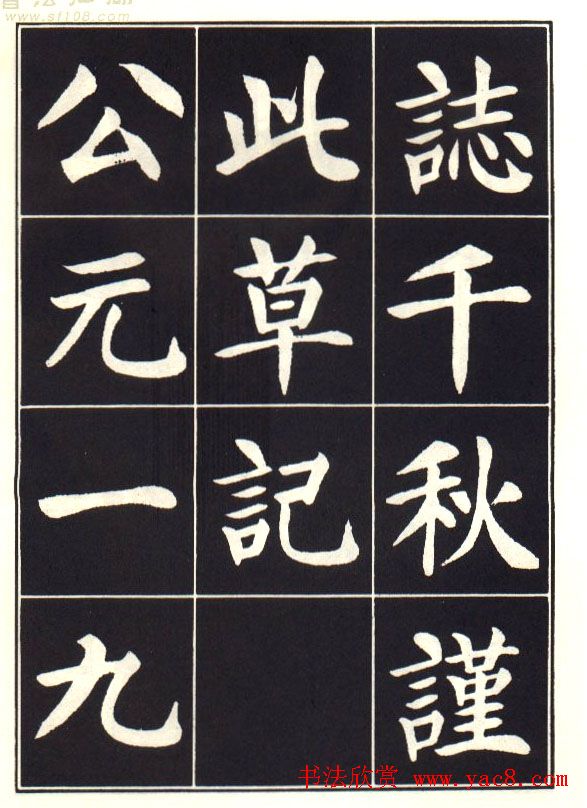 www.sf108.com
誌千秋謹
此草記
公元一九
书法欣赏 www.yac8.com